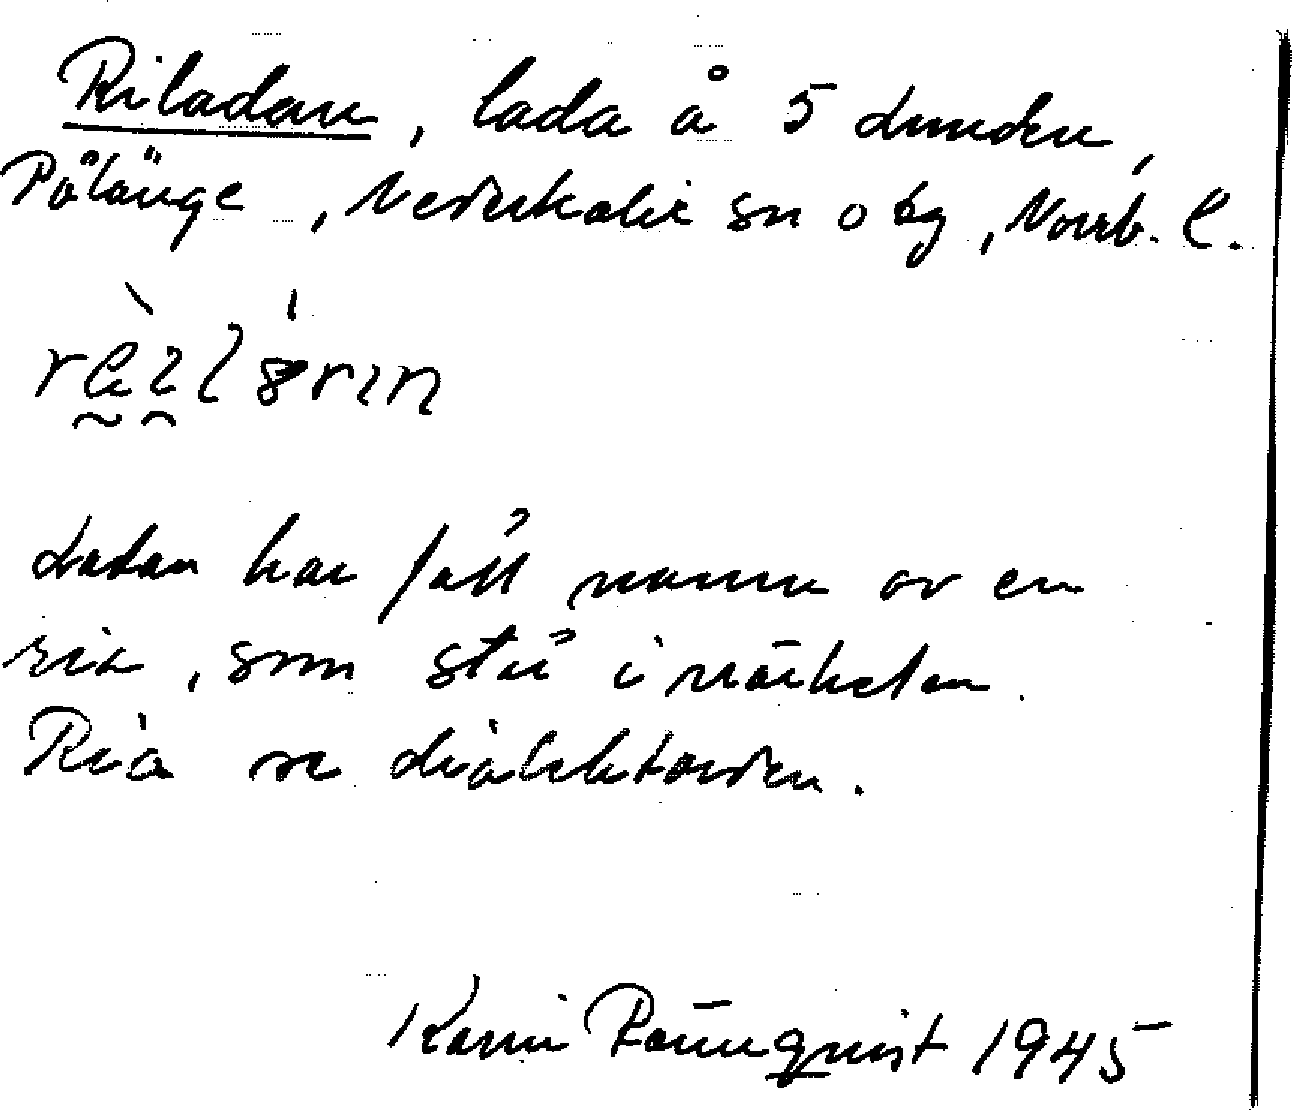 Riladan, lada å 5 lmnden,
Pålänge, Nederkalix sn o tg, Norrb. l.
Ladan har fått namn av en
ria, som står i närheten.
Ria se dialektorden.
Karin Rönnquist 1945